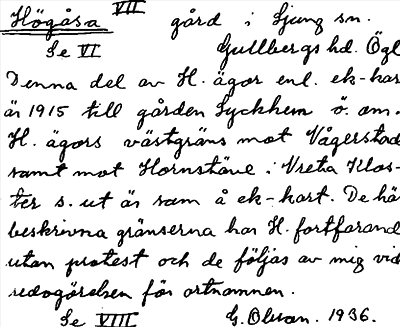 Högåsa VII gård i Ljung sn.
Se VI Gullbergs hd. Ögl
Denna del av H. ägor enl. ek-kar
är 1915 till gården Lyckhem ö. om.
H. ägors västgräns mot Vågerstad
samt mot Hornstäve i Vreta Klos-
ter s. ut är som å ek-kart. De hä
beskrivna gränserna har H. fortfarand
utan protest och de följas av mig vid
redogörelsen för ortnamnen.
Se VIII G. Olsson. 1936.